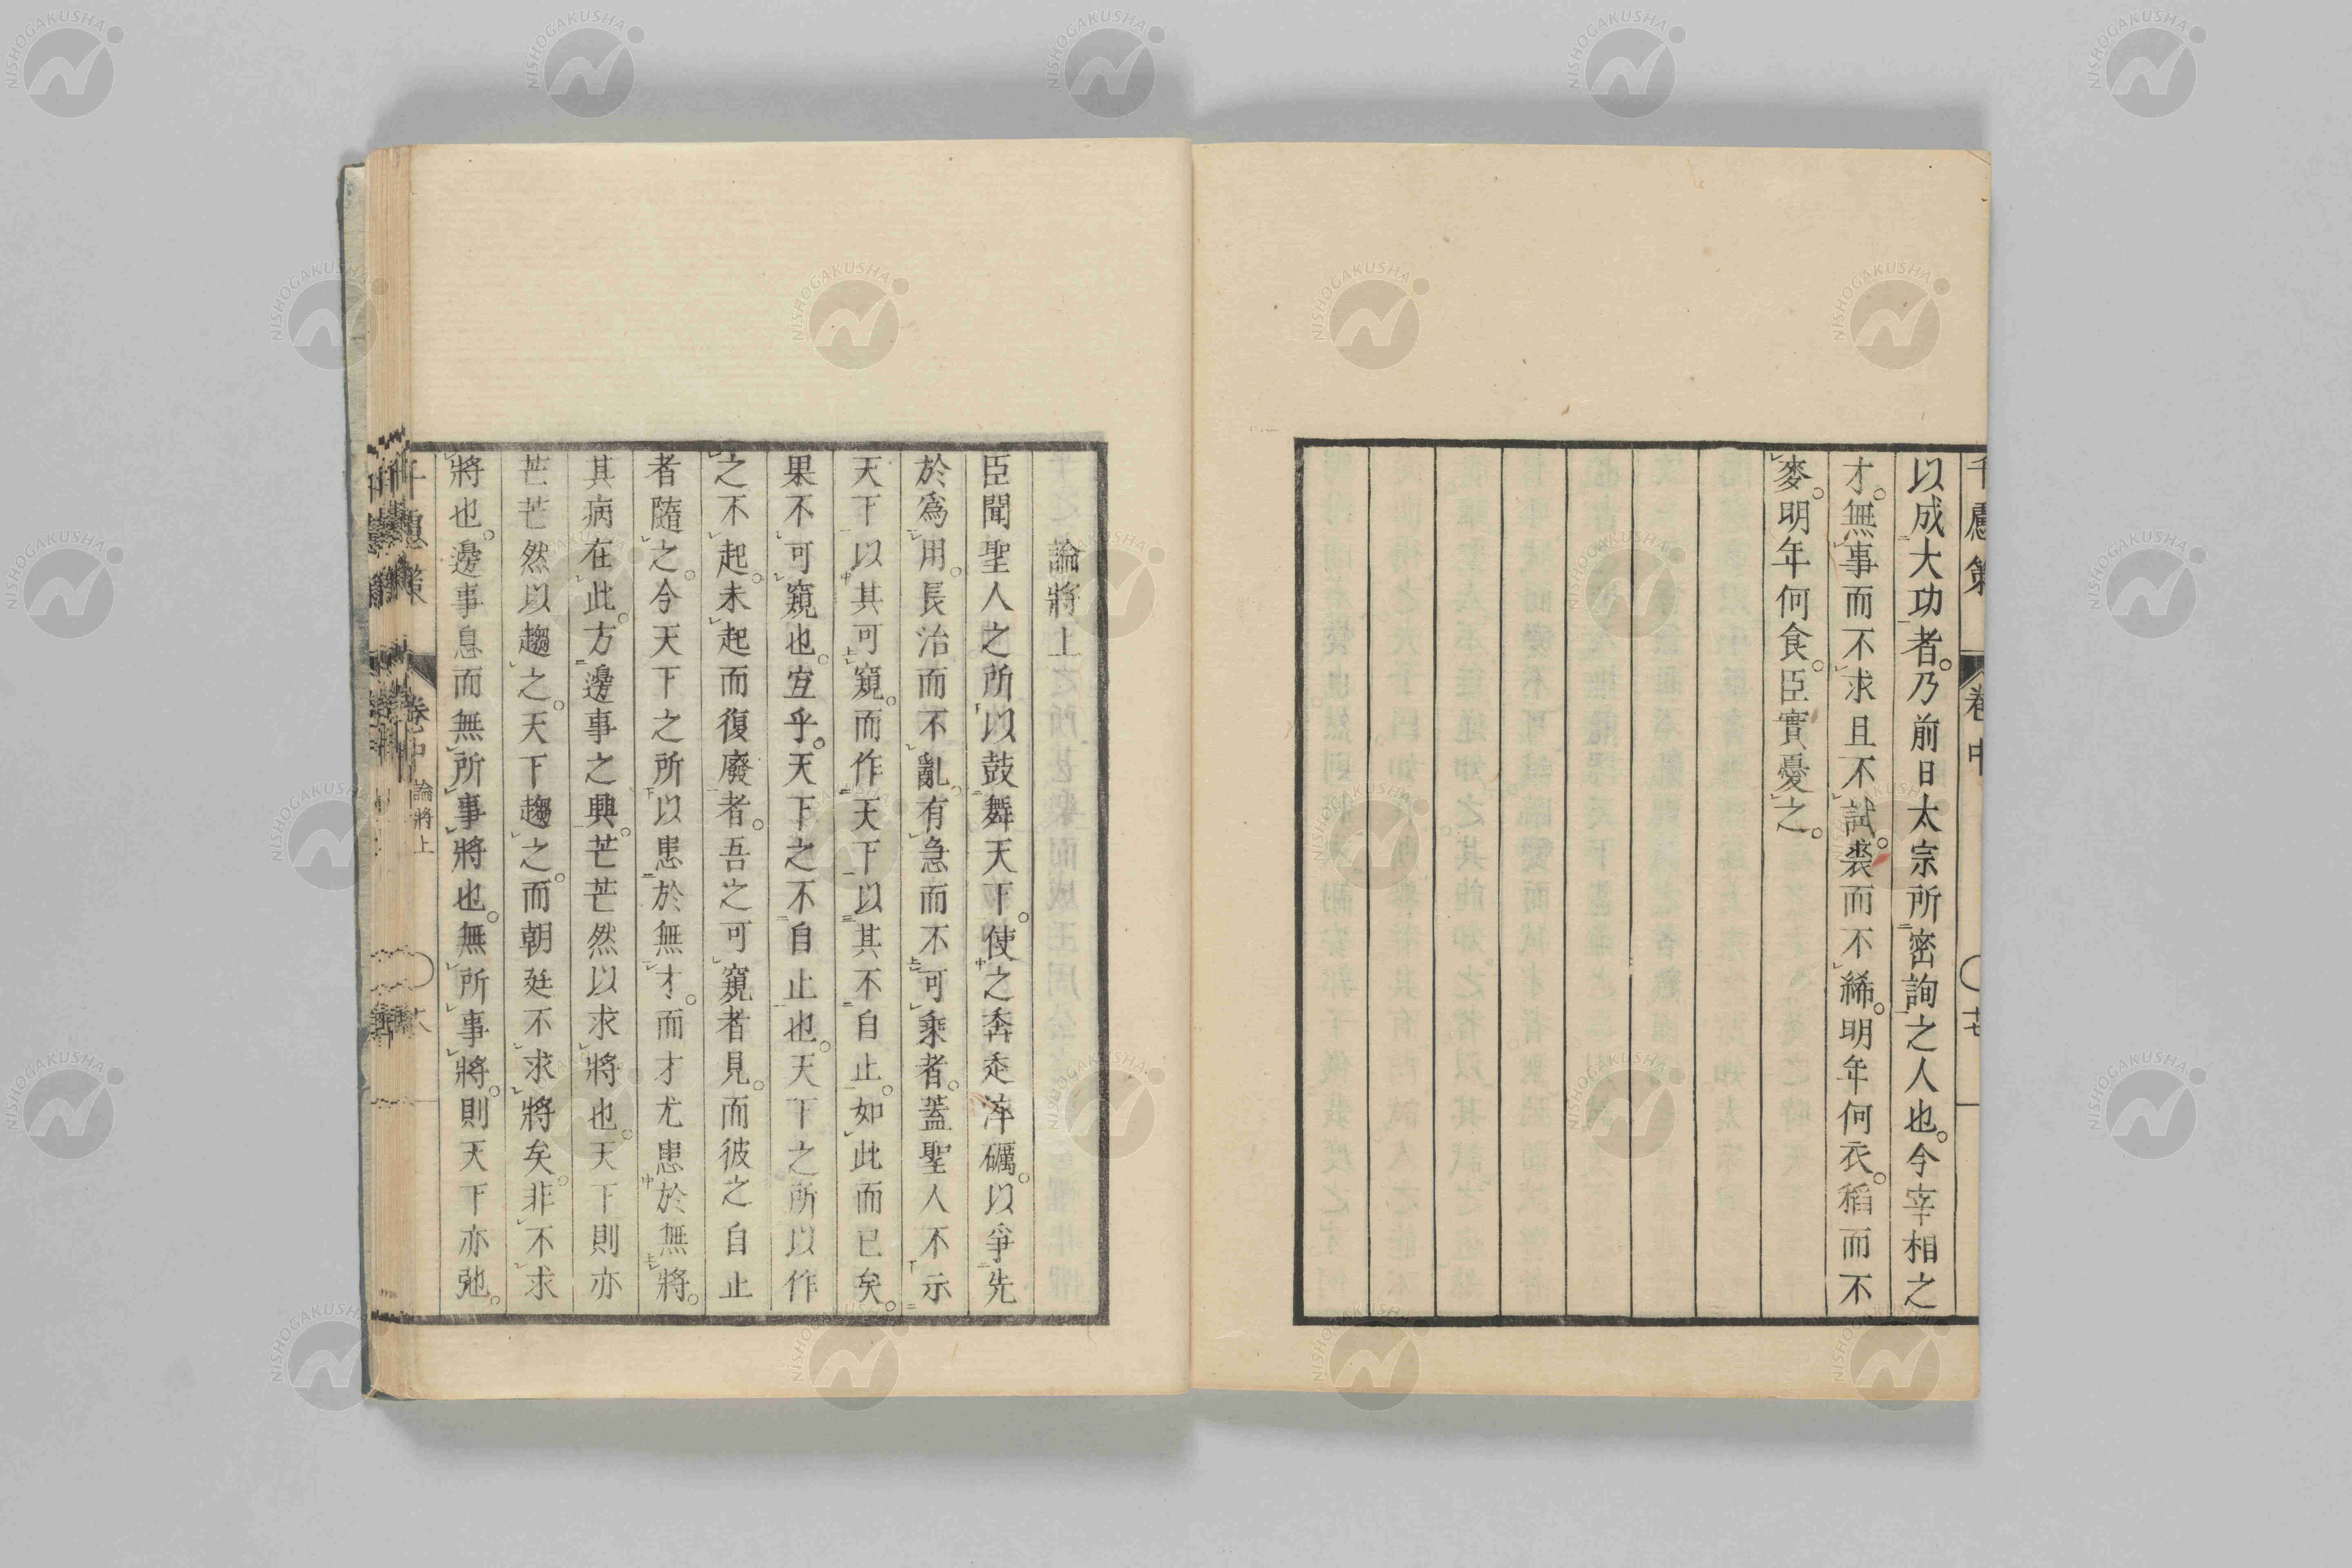 千慮策
卷中
以成大功者。乃前日太宗所密詢之人也。今宰相之
才。無事而不求且不試。裘而不絺。明年何衣。稻而不
麥。明年何食。臣實憂之。
論將上
臣聞聖人之所以鼓舞天下。使之奔走淬礪。以爭先
於爲用。長治而不亂。有急而不可乘者。蓋聖人不示
天下以其可窺。而作天下以其不自止。如此而已矣。
果不可窺也。宜乎。天下之不自止也。天下之所以作
之不起。未起而復廢者。吾之可窺者見。而彼之自止
者隨之。今天下之所以患於無才。而才尤患於無將。
其病在此。方邊事之興。芒芒然以求將也。天下則亦
芒芒然以趨之。天下趨之。而朝廷不求將矣。非不求
將也。邊事息而無所事將也。無所事將。則天下亦弛。
千慮策
卷中
論將上
NISHOGAKUSHA